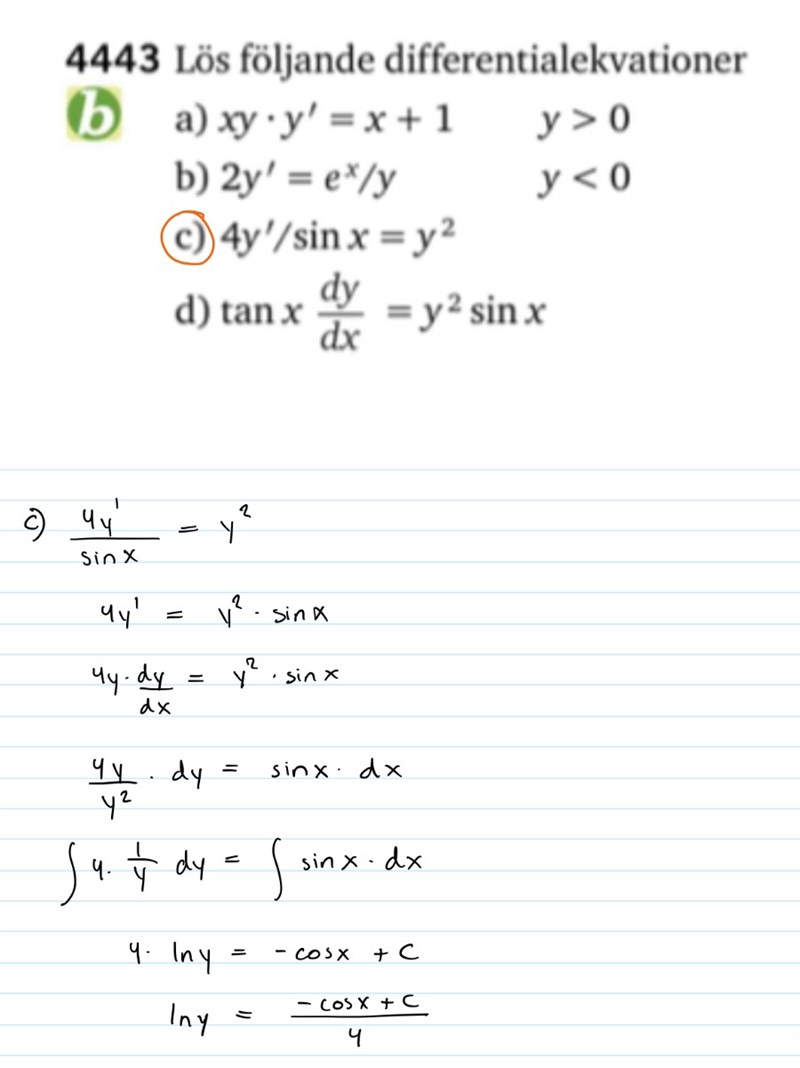 4443 Lös följande differentialekvationer
b
a) xy · y' = x + 1 y > 0
b) 2y' = eˣ/y y < 0
c) 4y'/sin x = y²
d) tan x dy/dx = y² sin x
c) 4y'/sin x = y²
4y' = y² · sin x
4y · dy/dx = y² · sin x
4y/y² · dy = sin x · dx
∫ 4 · 1/y dy = ∫ sin x · dx
4 · ln y = - cos x + C
ln y = (- cos x + C)/4